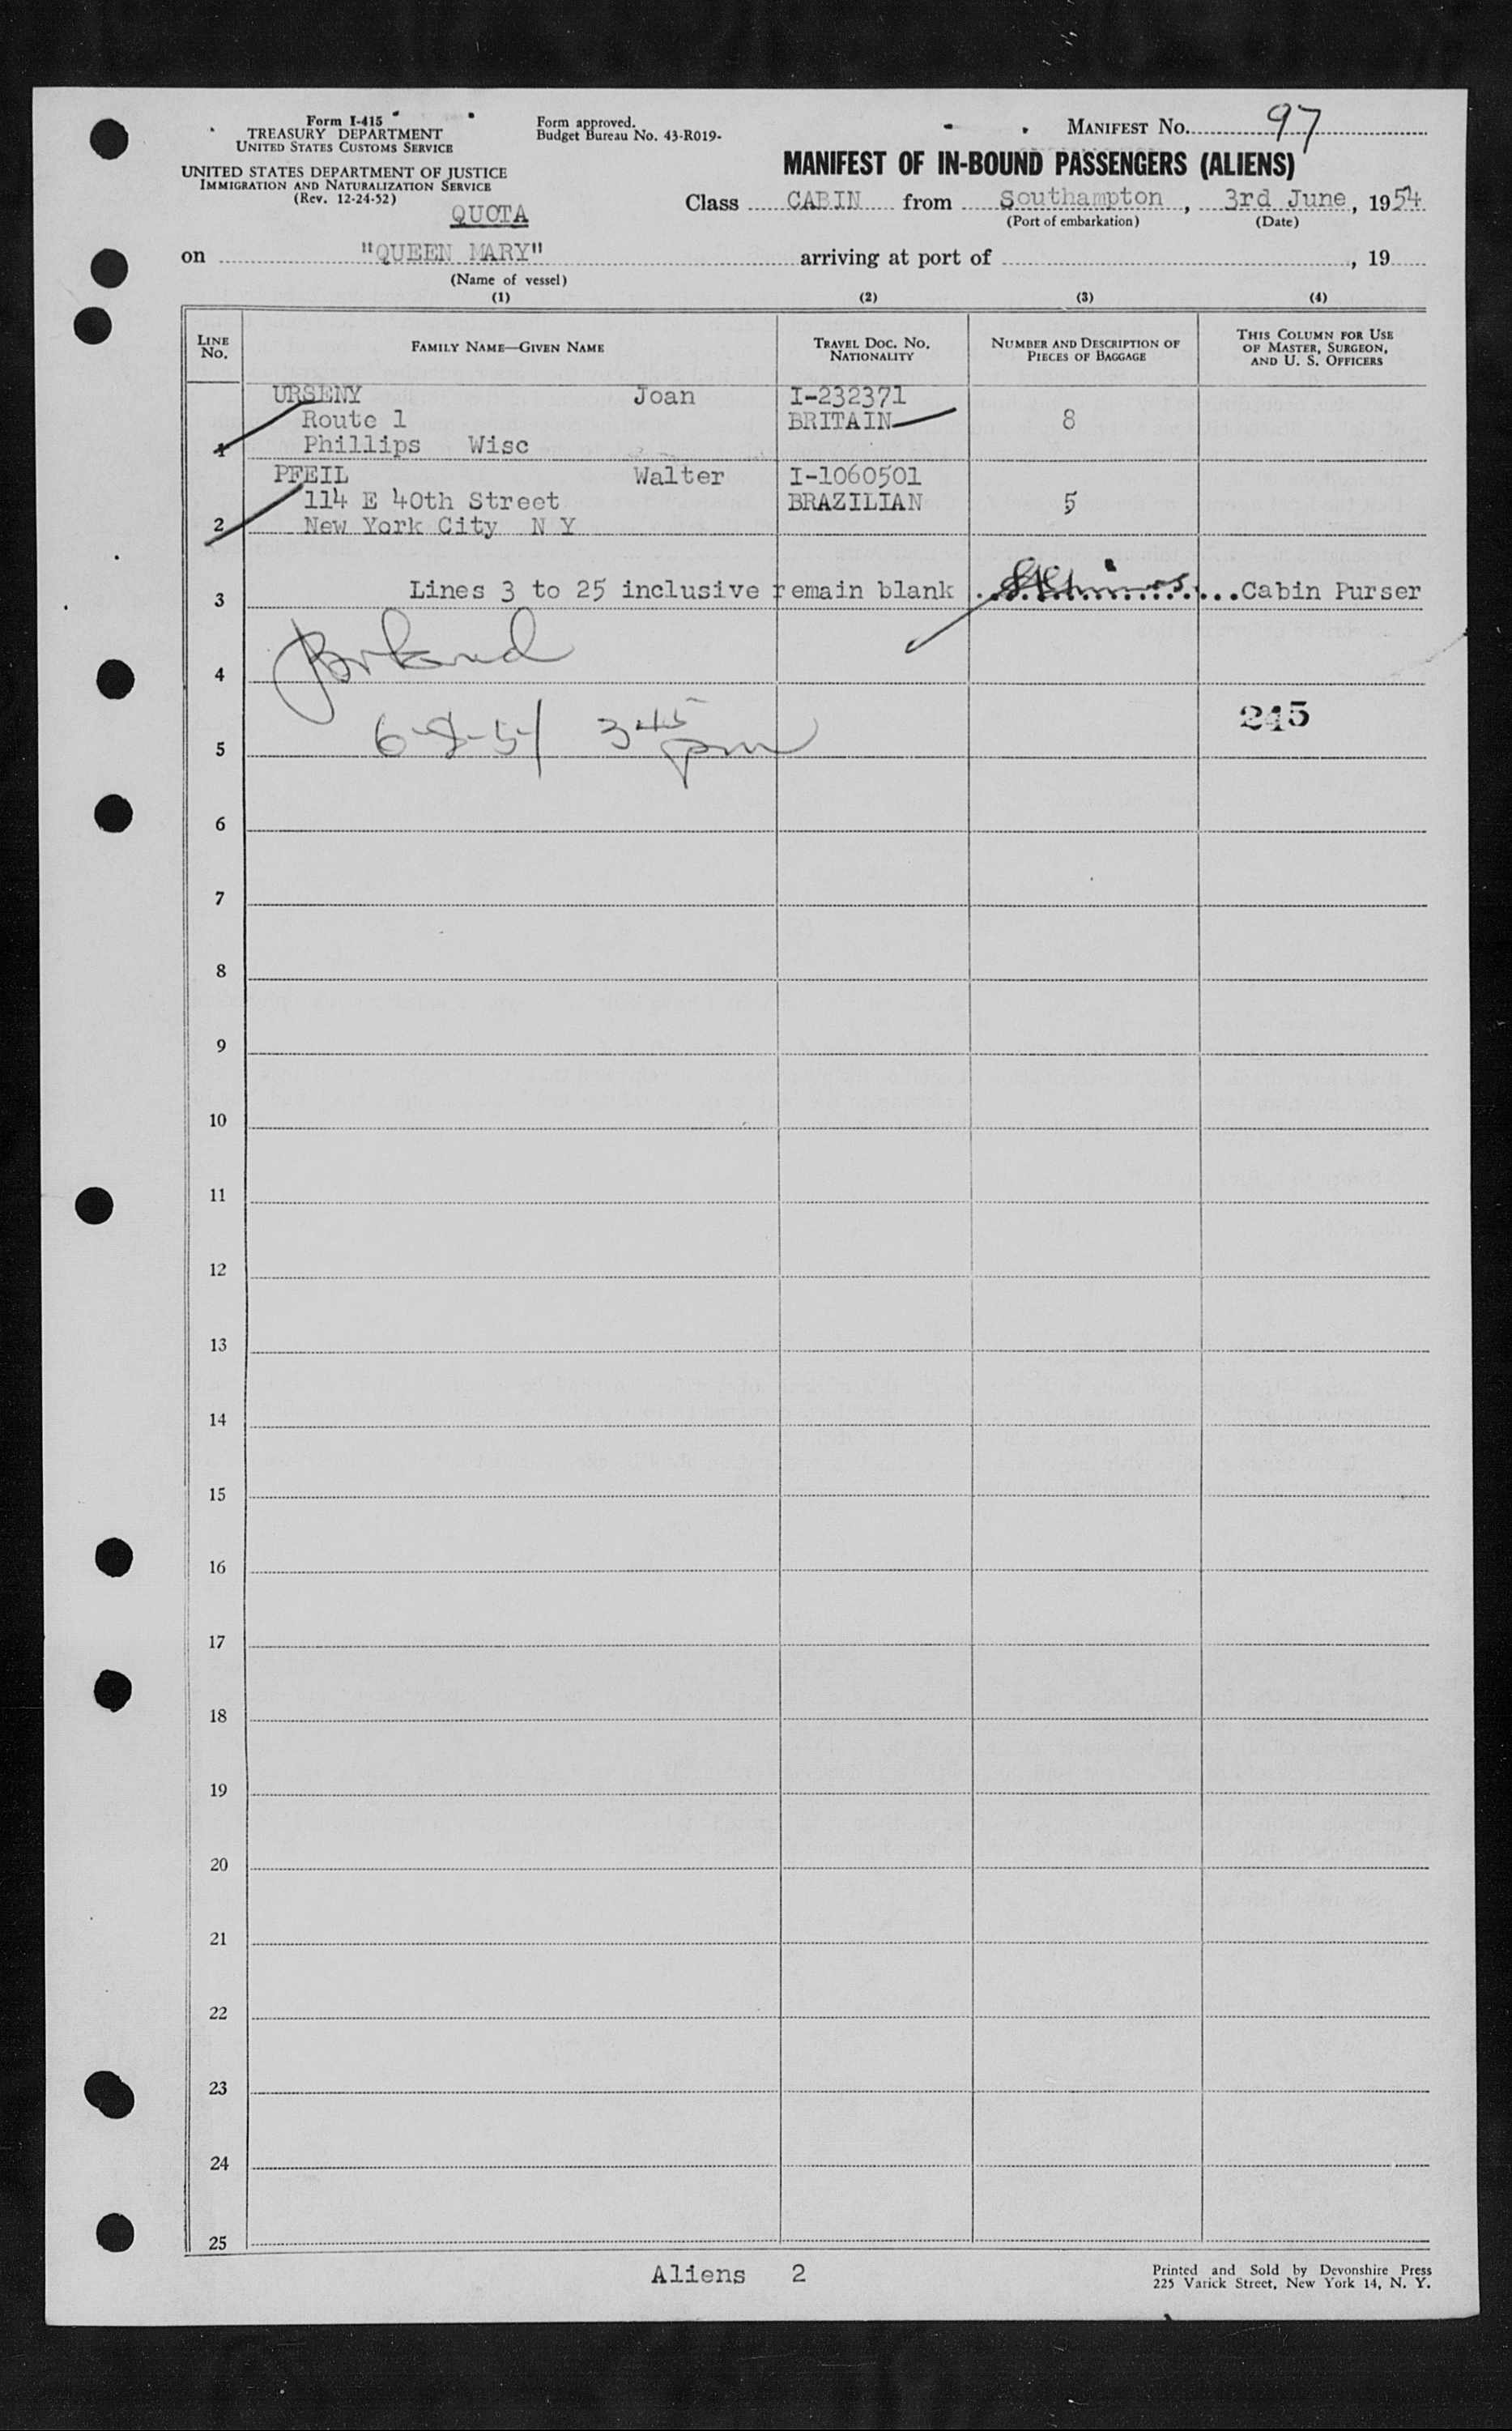 Form I-415
TREASURY DEPARTMENT
UNITED STATES CUSTOMS SERVICE
UNITED STATES DEPARTMENT OF JUSTICE
IMMIGRATION AND NATURALIZATION SERVICE
(Rev. 12-24-52)
QUOTA
Form approved.
Budget Bureau No. 43-R019-
MANIFEST No. 97
MANIFEST OF IN-BOUND PASSENGERS (ALIENS)
Class CABIN from Southampton, 3rd June, 1954
(Port of embarkation) (Date)
on "QUEEN MARY" arriving at port of , 19
(Name of vessel)
(1) (2) (3) (4)
LINE No. FAMILY NAME—GIVEN NAME TRAVEL DOC. No. NATIONALITY NUMBER AND DESCRIPTION OF PIECES OF BAGGAGE THIS COLUMN FOR USE OF MASTER, SURGEON, AND U. S. OFFICERS
URSENY Joan I-232371
Route 1 BRITAIN 8
1 Phillips Wisc
PFEIL Walter I-1060501
114 E 40th Street BRAZILIAN 5
2 New York City N Y
3 Lines 3 to 25 inclusive remain blank Cabin Purser
4
245
5 6-8-54 3 45 pm
6
7
8
9
10
11
12
13
14
15
16
17
18
19
20
21
22
23
24
25
Aliens 2
Printed and Sold by Devonshire Press
225 Varick Street, New York 14, N. Y.